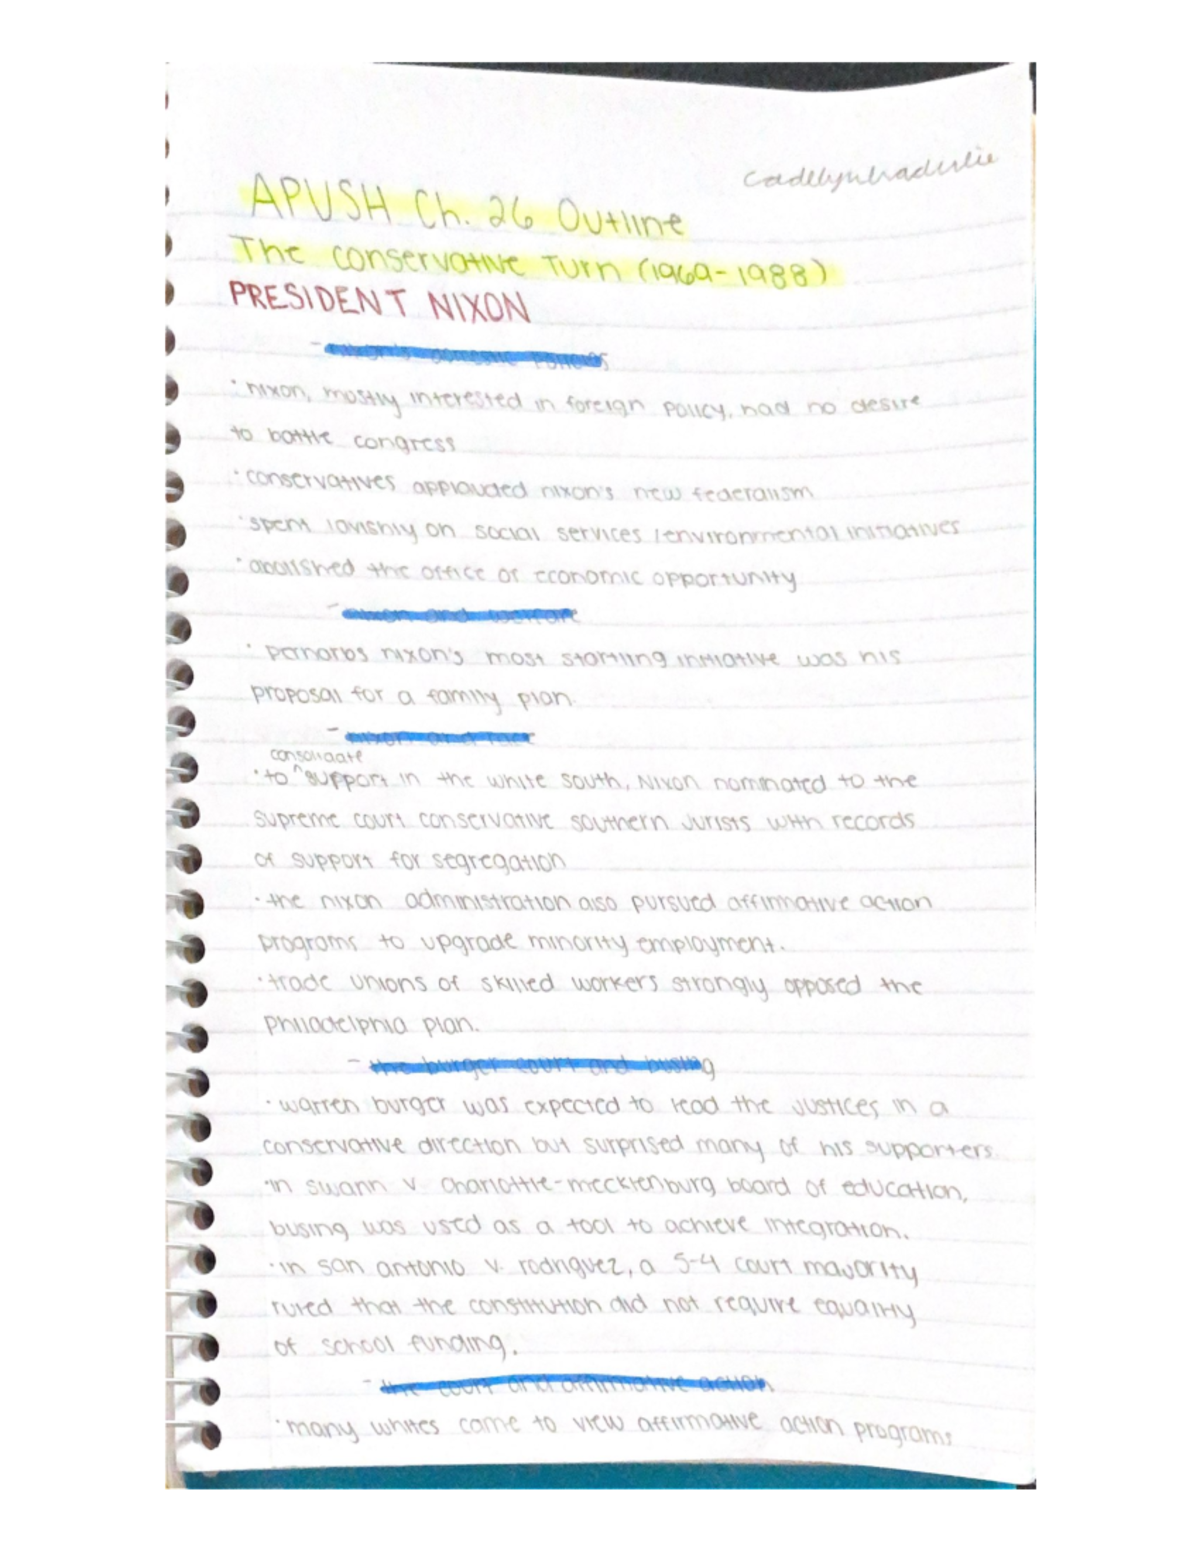 APUSH Ch. 26 Outline
The conservative Turn (1969-1988)
PRESIDENT NIXON
- nixon's domestic policies
· nixon, mostly interested in foreign policy, had no desire
to battle congress
· conservatives applauded nixon's new federalism
· spent lavishly on social services /environmental initiatives
· abolished the office of economic opportunity
- nixon and welfare
· perhaps nixon's most startling initiative was his
proposal for a family plan.
- nixon and race
consolidate
· to ^ support in the white south, Nixon nominated to the
supreme court conservative southern jurists with records
of support for segregation
· the nixon administration also pursued affirmative action
programs to upgrade minority employment.
· trade unions of skilled workers strongly opposed the
philadelphia plan.
- the burger court and busing
· warren burger was expected to lead the justices in a
conservative direction but surprised many of his supporters.
· in swann v. charlottle-mecklenburg board of education,
busing was used as a tool to achieve integration.
· in san antonio v. rodriguez, a 5-4 court majority
ruled that the constitution did not require equality
of school funding.
- the court and affirmative action
· many whites came to view affirmative action programs